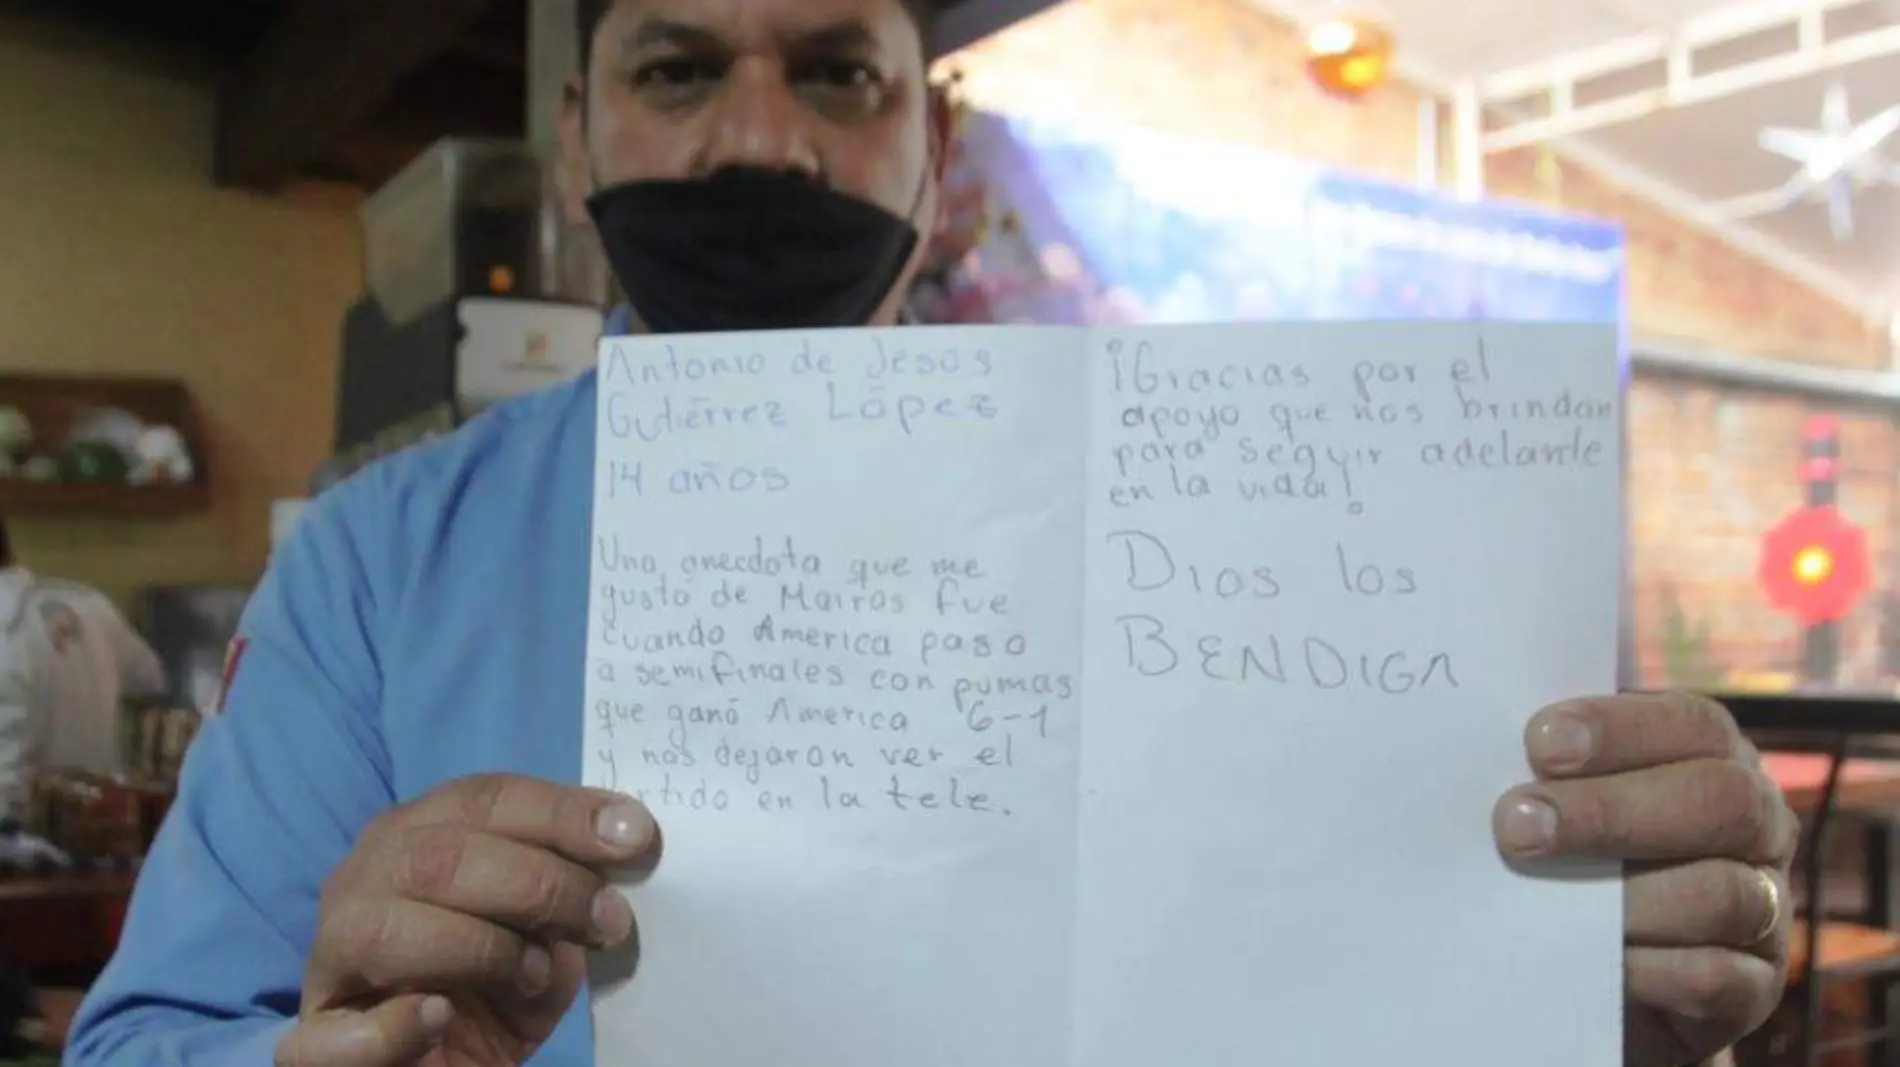 Antonio de Jesus
Gutiérrez López
14 años
Una anecdota que me
gustó de Mairos fue
cuando America paso
a semifinales con pumas
que ganó America 6-1
y nos dejaron ver el
partido en la tele.
¡Gracias por el
apoyo que nos brindan
para seguir adelante
en la vida!
Dios los
BENDIGA